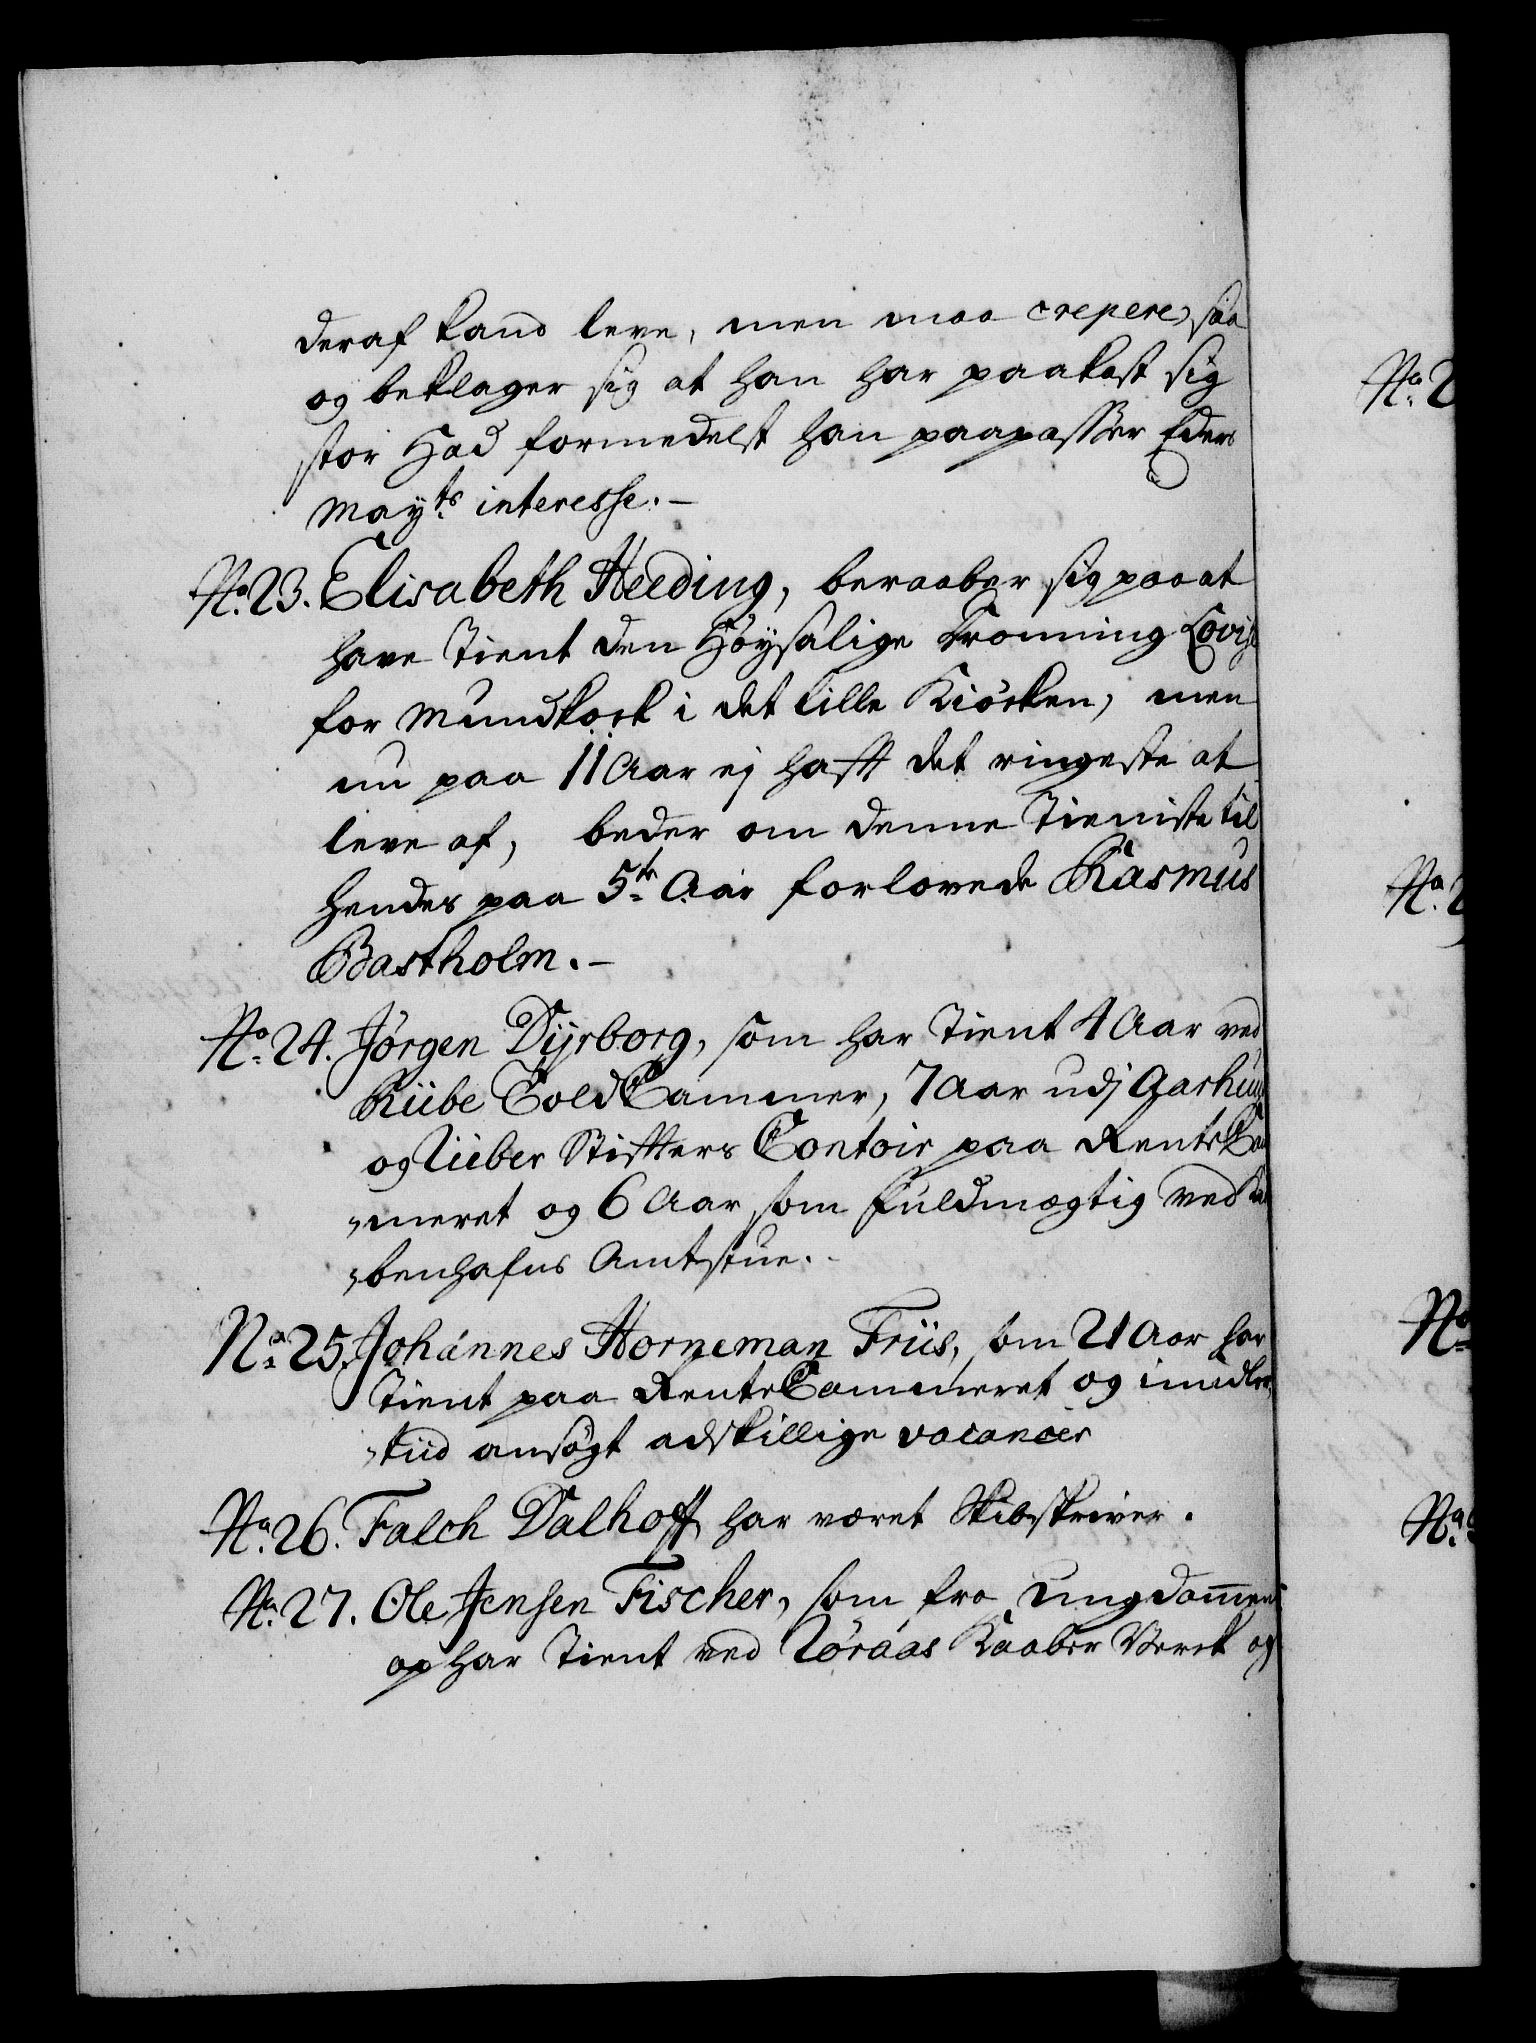 deraf kand leve, men maa crepere, saa
og beklager sig at han har paakast sig
stor Had formedelst han paapasser Eders
May:ts interesse.-
No: 23. Elisabeth Heeding, beraaber sig paa at
have tient den Höysalige Dronning Lovise
for Mundkock i det lille Kiöcken, men
nu paa 11 Aar ej hafft det ringeste at
leve af, beder om denne Tieniste til
hendes paa 5te Aar forlovede Rasmus
Bastholm.-
No: 24. Jörgen Dÿrborg, som har tient 4 Aar ved
Riibe Told Cammer, 7 Aar udj Aarhuus
og Riiber Stifters Contoir paa Rente
meret og 6 Aar som Fuldmægtig ved
benhafns Amtstue.
No: 25. Johannes Horneman Friis, som 21 Aar har
tient paa RenteCammeret og imidler
tiid ansögt adskillige vacancer
No: 26. Falch Dalhoff har været Skibskriver.
No: 27. Ole Jensen Fischer, som fra Ungdommen
op har tient ved Röraas Kaaber Verck og
No: 2
No: 2
No:
No: